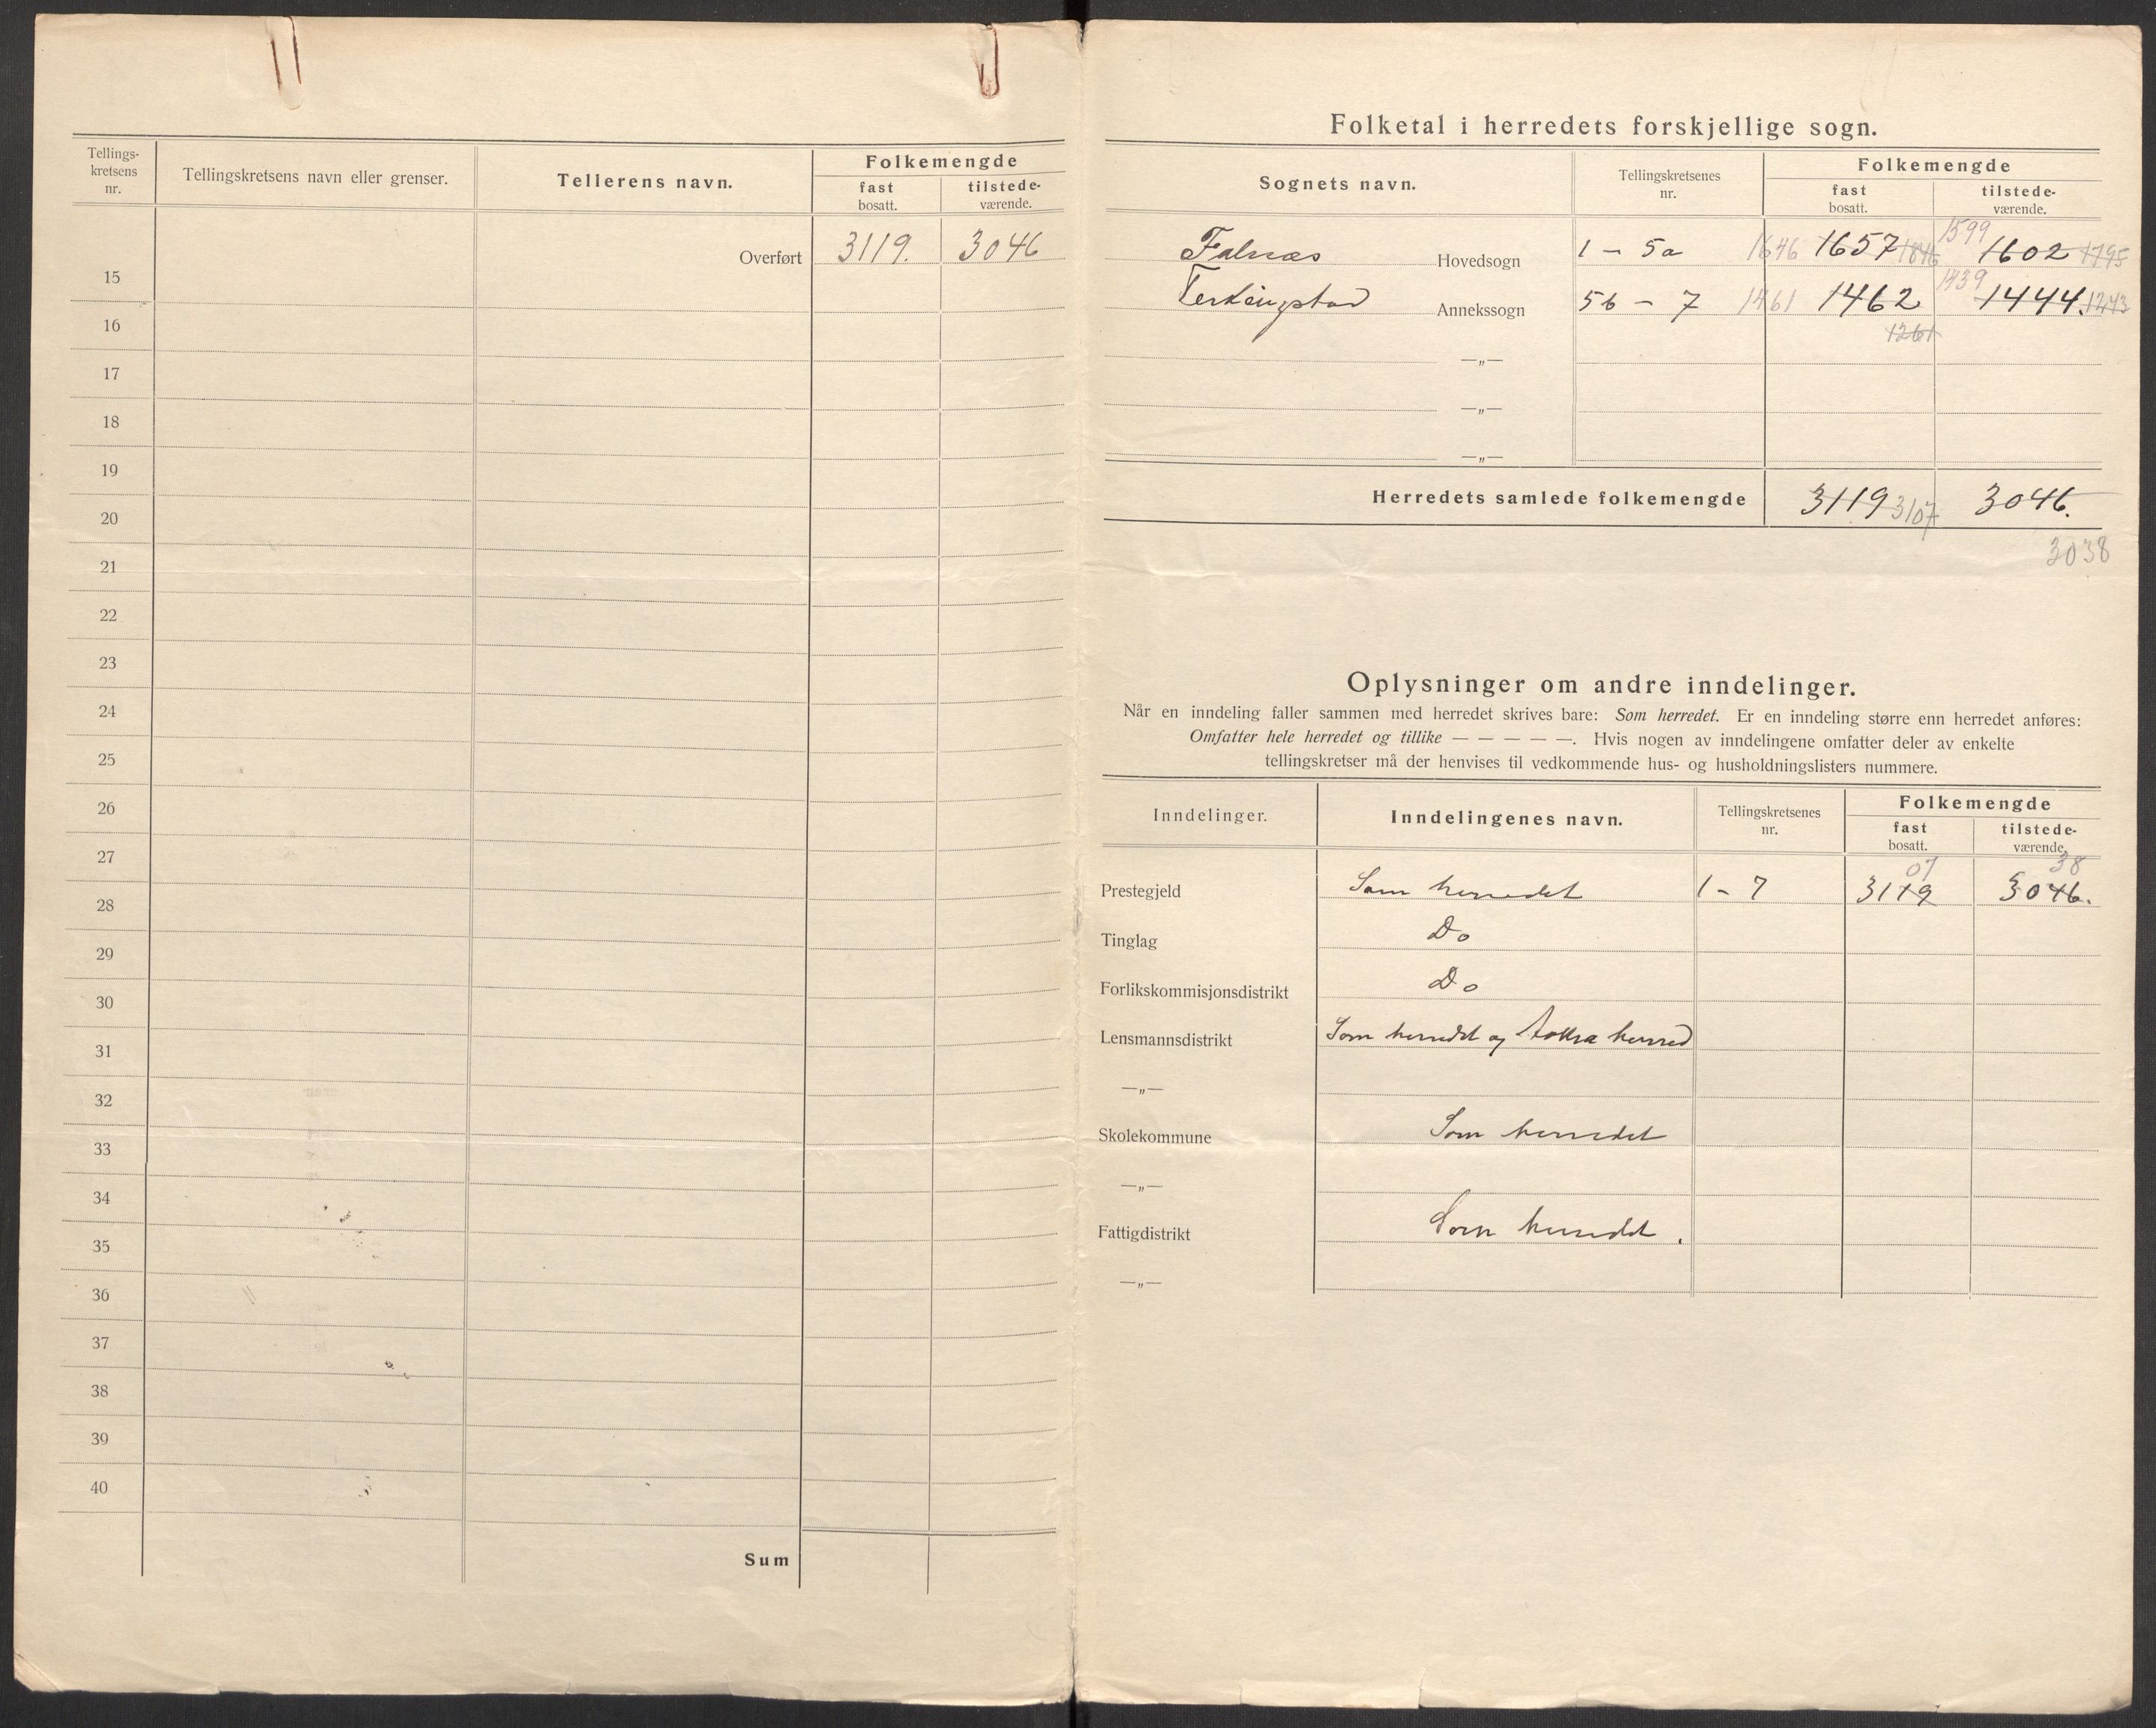 Tellings-
kretsens
nr.
Tellingskretsens navn eller grenser.
Tellerens navn.
Folkemengde
fast
bosatt.
tilstede-
værende.
Overført 3119. 3046
15
16
17
18
19
20
21
22
23
24
25
26
27
28
29
30
31
32
33
34
35
36
37
38
39
40
Sum
Folketal i herredets forskjellige sogn.
Sognets navn.
Tellingskretsenes
nr.
Folkemengde
fast
bosatt.
tilstede-
værende.
1599
Falnæs Hovedsogn 1 - 5a 1646 1657 1846 1602 1795
1439
Ferkingstad Annekssogn 5b - 7 1461 1462 1444. 1243
1261
—„—
—„—
—„—
Herredets samlede folkemengde 3119 3107 3046.
3038
Oplysninger om andre inndelinger.
Når en inndeling faller sammen med herredet skrives bare: Som herredet. Er en inndeling større enn herredet anføres:
Omfatter hele herredet og tillike — — — — —. Hvis nogen av inndelingene omfatter deler av enkelte
tellingskretser må der henvises til vedkommende hus- og husholdningslisters nummere.
Inndelinger.
Inndelingenes navn.
Tellingskretsenes
nr.
Folkemengde
fast
bosatt.
tilstede-
værende.
07 38
Prestegjeld Som herredet 1 - 7 3119 3046.
Tinglag Do
Forlikskommisjonsdistrikt Do
Lensmannsdistrikt Som herredet og herred
—„—
Skolekommune Som herredet
—„—
Fattigdistrikt Som herredet.
—„—